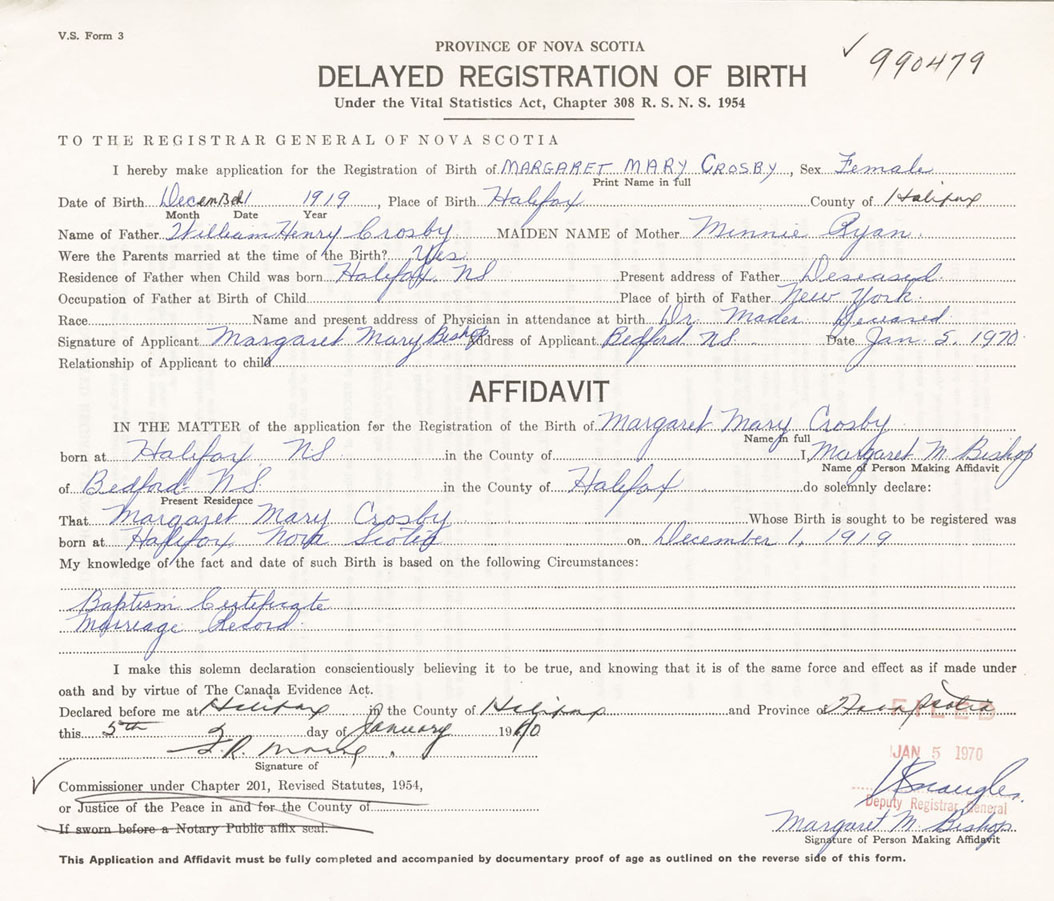 V.S. Form 3
PROVINCE OF NOVA SCOTIA
990479
DELAYED REGISTRATION OF BIRTH
Under the Vital Statistics Act, Chapter 308 R. S. N. S. 1954
TO THE REGISTRAR GENERAL OF NOVA SCOTIA
I hereby make application for the Registration of Birth of MARGARET MARY CROSBY, Sex Female
Print Name in full
Date of Birth December 1 1919, Place of Birth Halifax County of Halifax
Month Date Year
Name of Father William Henry Crosby MAIDEN NAME of Mother Minnie Ryan
Were the Parents married at the time of the Birth? Yes
Residence of Father when Child was born Halifax NS Present address of Father Deseased
Occupation of Father at Birth of Child Place of birth of Father New York
Race Name and present address of Physician in attendance at birth Dr. Mader Deceased
Signature of Applicant Margaret Mary Bishop Address of Applicant Bedford NS. Date Jan. 5, 1970
Relationship of Applicant to child
AFFIDAVIT
IN THE MATTER of the application for the Registration of the Birth of Margaret Mary Crosby
Name in full
born at Halifax NS in the County of I, Margaret M. Bishop
Name of Person Making Affidavit
of Bedford NS in the County of Halifax do solemnly declare:
Present Residence
That Margaret Mary Crosby Whose Birth is sought to be registered was
born at Halifax Nova Scotia on December 1, 1919
My knowledge of the fact and date of such Birth is based on the following Circumstances:
Baptism Certificate
Marriage Record
I make this solemn declaration conscientiously believing it to be true, and knowing that it is of the same force and effect as if made under
oath and by virtue of The Canada Evidence Act.
Declared before me at Halifax in the County of Halifax and Province of Nova Scotia
FILED
this 5th day of January 1970
JAN 5 1970
Signature of
Commissioner under Chapter 201, Revised Statutes, 1954,
or Justice of the Peace in and for the County of
Deputy Registrar General
If sworn before a Notary Public affix seal.
Margaret M. Bishop
Signature of Person Making Affidavit
This Application and Affidavit must be fully completed and accompanied by documentary proof of age as outlined on the reverse side of this form.